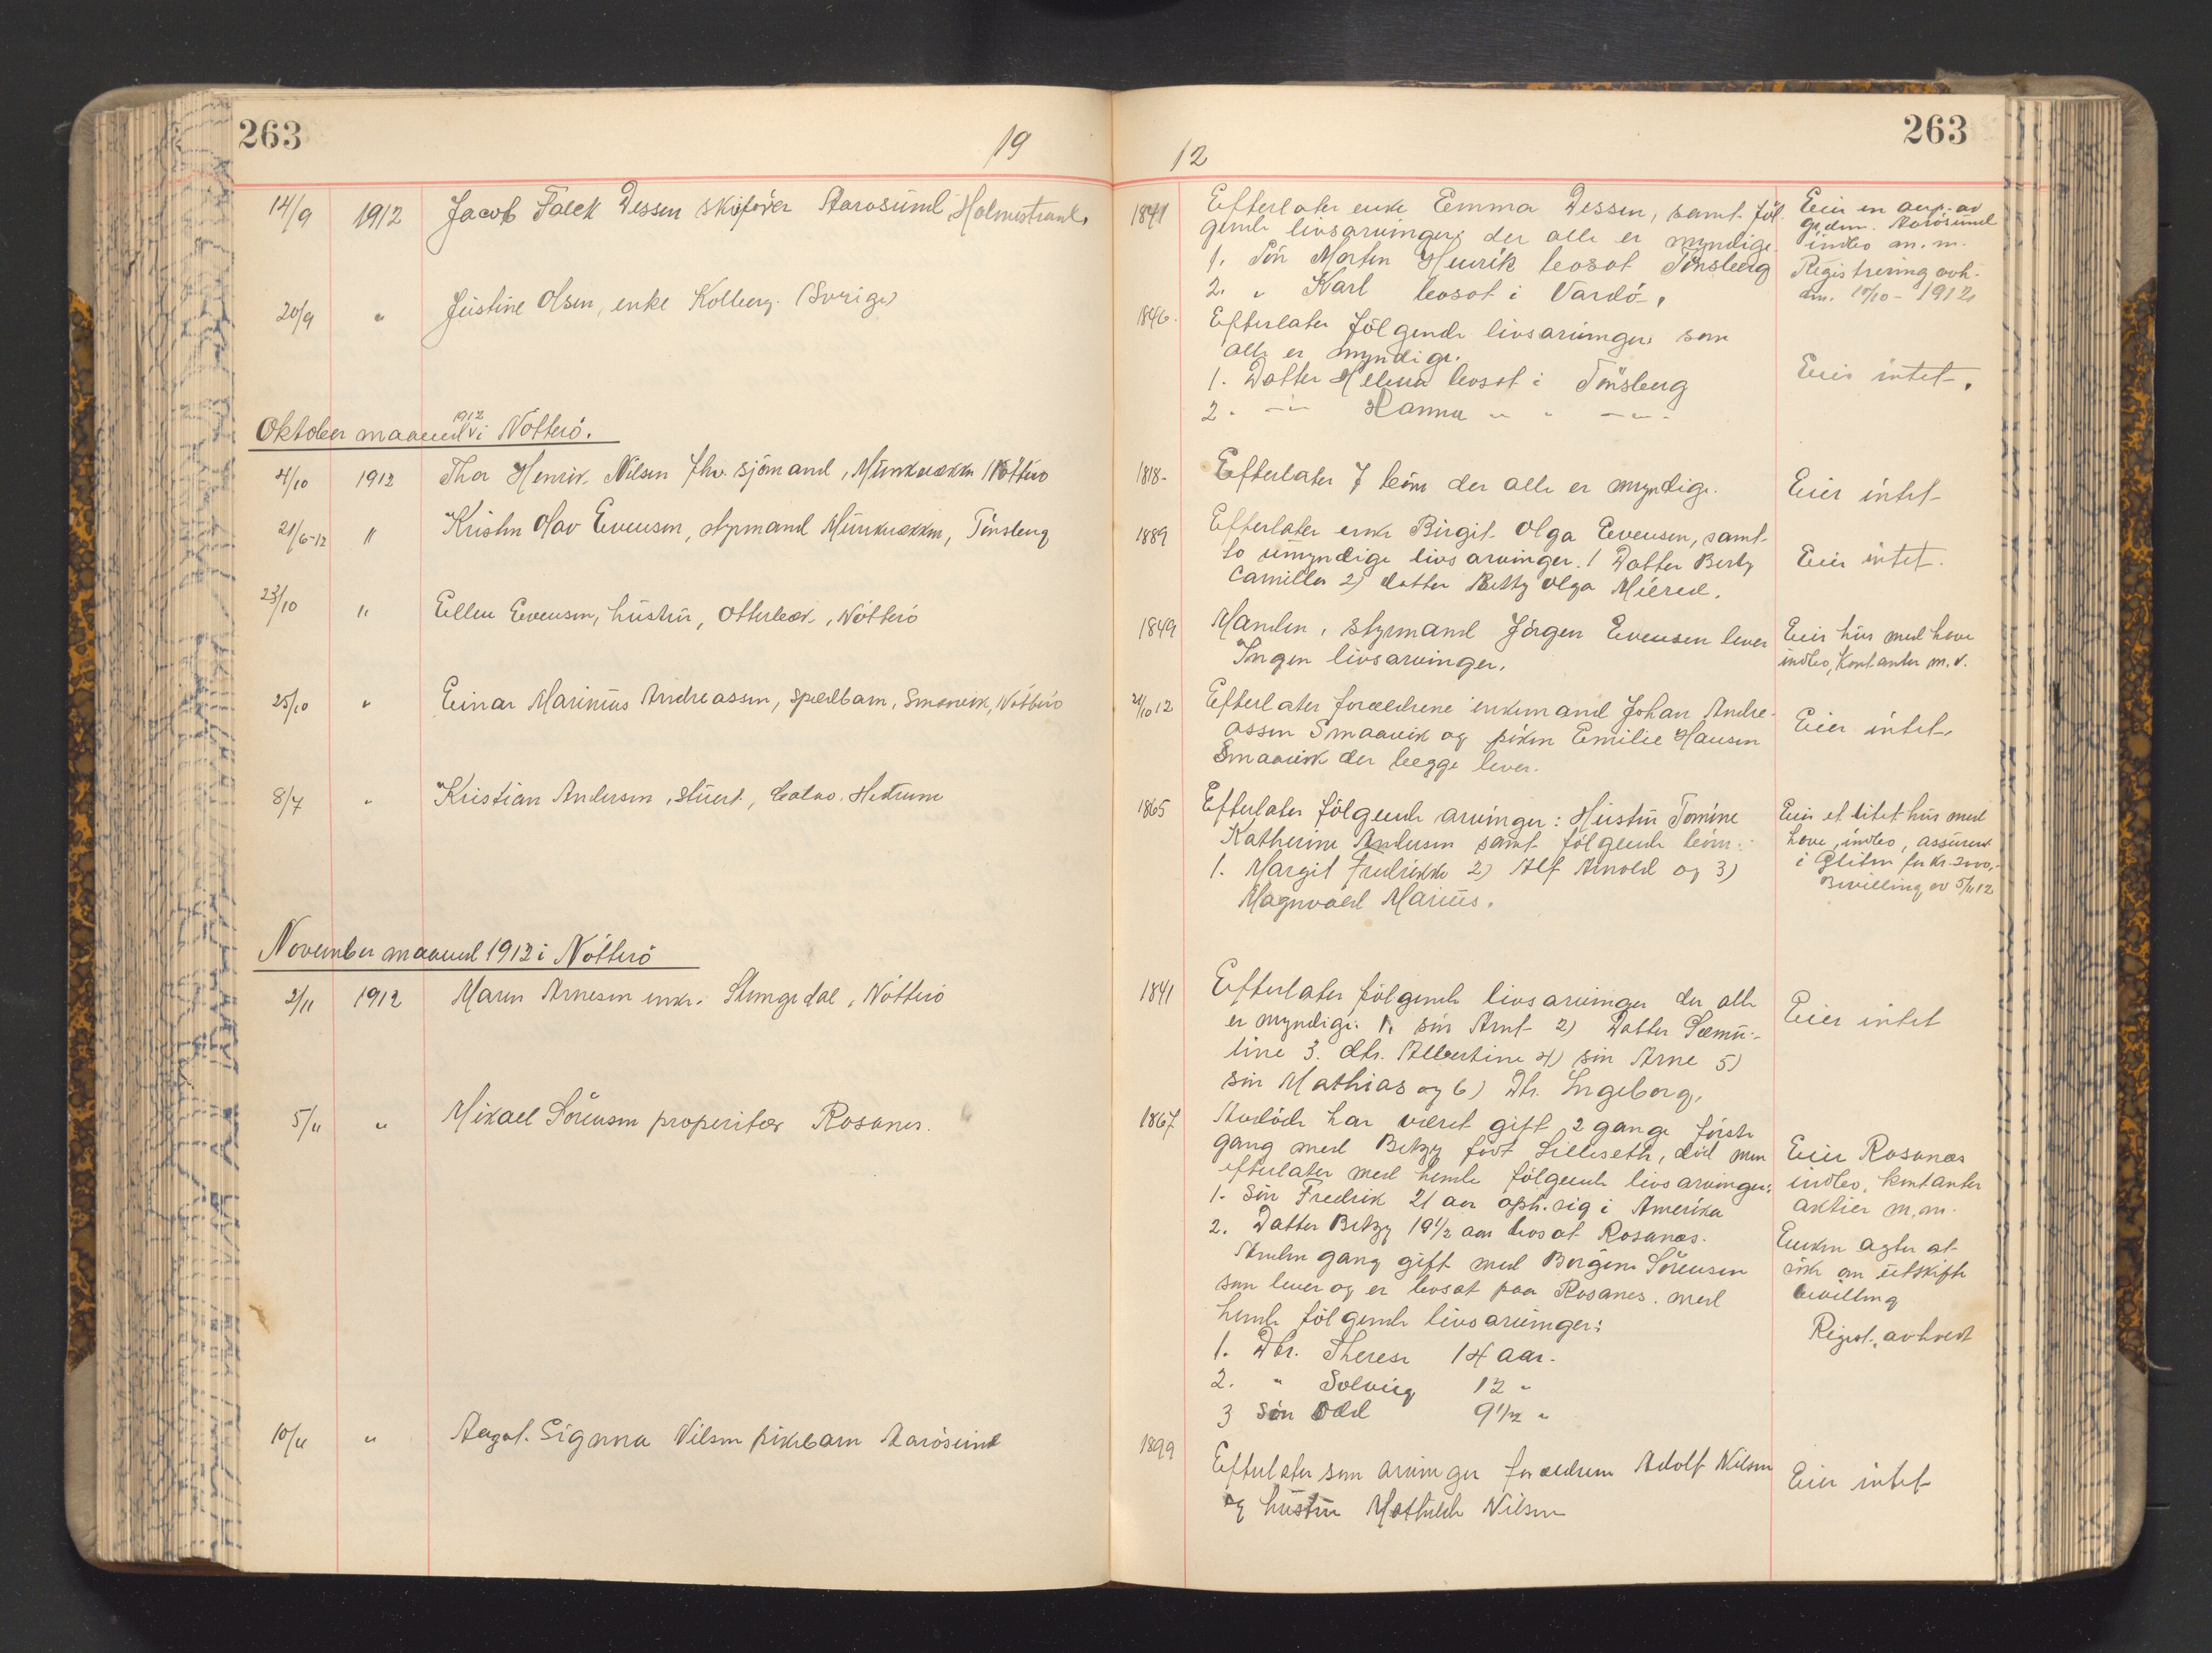 263
19
12
263
14/9 1912 Jacob Falck Dessen skipfører Aarøsund, Holmestrand
1841 Efterlater enke Emma Dessen, samt føl-
gende livsarvinger der alle er myndige
1. Søn Morten Henrik bosat Tønsberg
2. " Karl bosat i Vardø.
Eier en
gdm. Aarøsund
indbo m. m.
Registrering avh.
1912
20/9 " Justine Olsen, enke Kolberg. (Sverige)
1846. Efterlater følgende livsarvinger som
alle er myndige.
1. Datter Helena bosat i Tønsberg
2. -"- Hanna " " -"-
Eier intet.
Oktober maaned 1912 i Nøtterø.
4/10 1912 Thor Henrik Nilsen fhv. sjømand, Munkerekken Nøtterø
1818- Efterlater 7 børn der alle er myndige.
Eier intet
21/6-12 " Kristen Olav Evensen, styrmand Munkerekken, Tønsberg
1889 Efterlater enke Birgit Olga Evensen, samt
to umyndige livsarvinger. 1 Datter Berby
Camilla 2) datter Betty Olga
Eier intet.
23/10 " Ellen Evensen, hustru, Otterbæk, Nøtterø
1849 Manden, styrmand Jørgen Evensen lever
Ingen livsarvinger.
Eier hus med have
indbo, kontanter m. v.
25/10 " Einar Marinius Andreassen, spædbarn, Smaavik, Nøtterø
21/10 12 Efterlater forældrene enkemand Johan Andre-
assen Smaavik og piken Emilie Hansen
Smaavik der begge lever.
Eier intet.
8/7 " Kristian Andersen, stuert, Hedrum
1865 Efterlater følgende arvinger: Hustru Tomine
Katherine Andersen samt følgende børn:
1. Margit Fredrikke 2) Alf Arnold og 3)
Magnvald Marius.
Eier et litet hus med
have, indbo, assurert
i Glitne for kr. 2000,-
Bevilling av 5/11 12
November maaned 1912 i Nøtterø
2/11 1912 Maren Arnesen enke. Slengedal, Nøtterø
1841 Efterlater følgende livsarvinger der alle
er myndige: 1. søn Arnt 2) Datter Samu-
line 3. dtr. Albertine 4) søn Arne 5)
søn Mathias og 6) Dtr. Ingeborg.
Eier intet
5/11 " Mikael Sørensen properitær Rosanes.
1867 Avdøde har været gift 2 gange første
gang med Betzy født Lilleseth, død men
efterlater med hende følgende livsarvinger:
1. Søn Fredrik 21 aar oph. sig i Amerika
2. Datter Betzy 19 1/2 aar bosat Rosanes.
Anden gang gift med Borgine Sørensen
som lever og er bosat paa Rosanes. med
hende følgende livsarvinger:
1. Dtr. Therese 14 aar.
2. " Solveig 12 "
3 Søn Odd 9 1/2 "
Eier Rosanes
indbo, kontanter
aktier m. m.
Enken agter at
søke om uskifte
bevilling
Regist. avholdt
10/11 " Aagot Signora Nilsen pikebarn Aarøsund
1899 Efterlater som arvinger forældrene Adolf Nilsen
og hustru Mathilde Nilsen
Eier intet